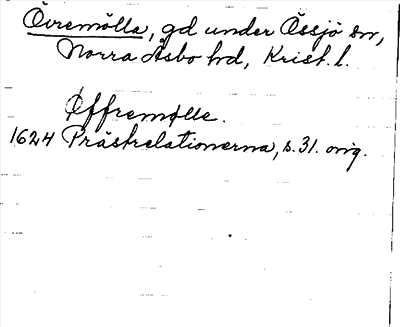 Övremölla, gd under Össjö sn,
Norra Åsbo hd, Krist. l.
Øffremølle.
1624 Prästrelationerna, s. 31. orig.